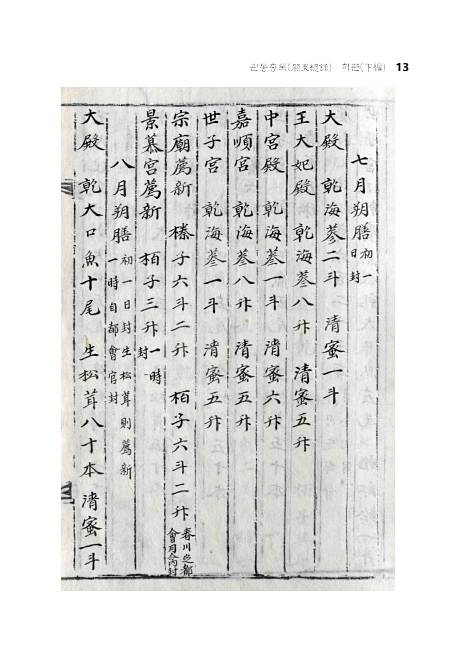 관동총록(關東總錄) 하편(下編) 13
七月朔膳 初一日封
大殿 乾海蔘二斗 清蜜一斗
王大妃殿 乾海蔘八升 清蜜五升
中宮殿 乾海蔘一斗 清蜜六升
嘉順宮 乾海蔘八升 清蜜五升
世子宮 乾海蔘一斗 清蜜五升
宗廟薦新 榛子六斗二升 栢子六斗二升 春川並都會月內封
景慕宮薦新 栢子三升 一時封
八月朔膳 初一日封生松茸則薦新一時自都會官封
大殿 乾大口魚十尾 生松茸八十本 清蜜一斗